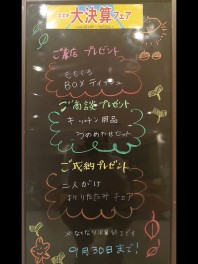 大決算フェア
ご来店プレゼント
BOXティッシュ
ご商談プレゼント
キッチン用品
つめあわせセット
ご成約プレゼント
二人がけ
折りたたみチェア
9月30日まで!